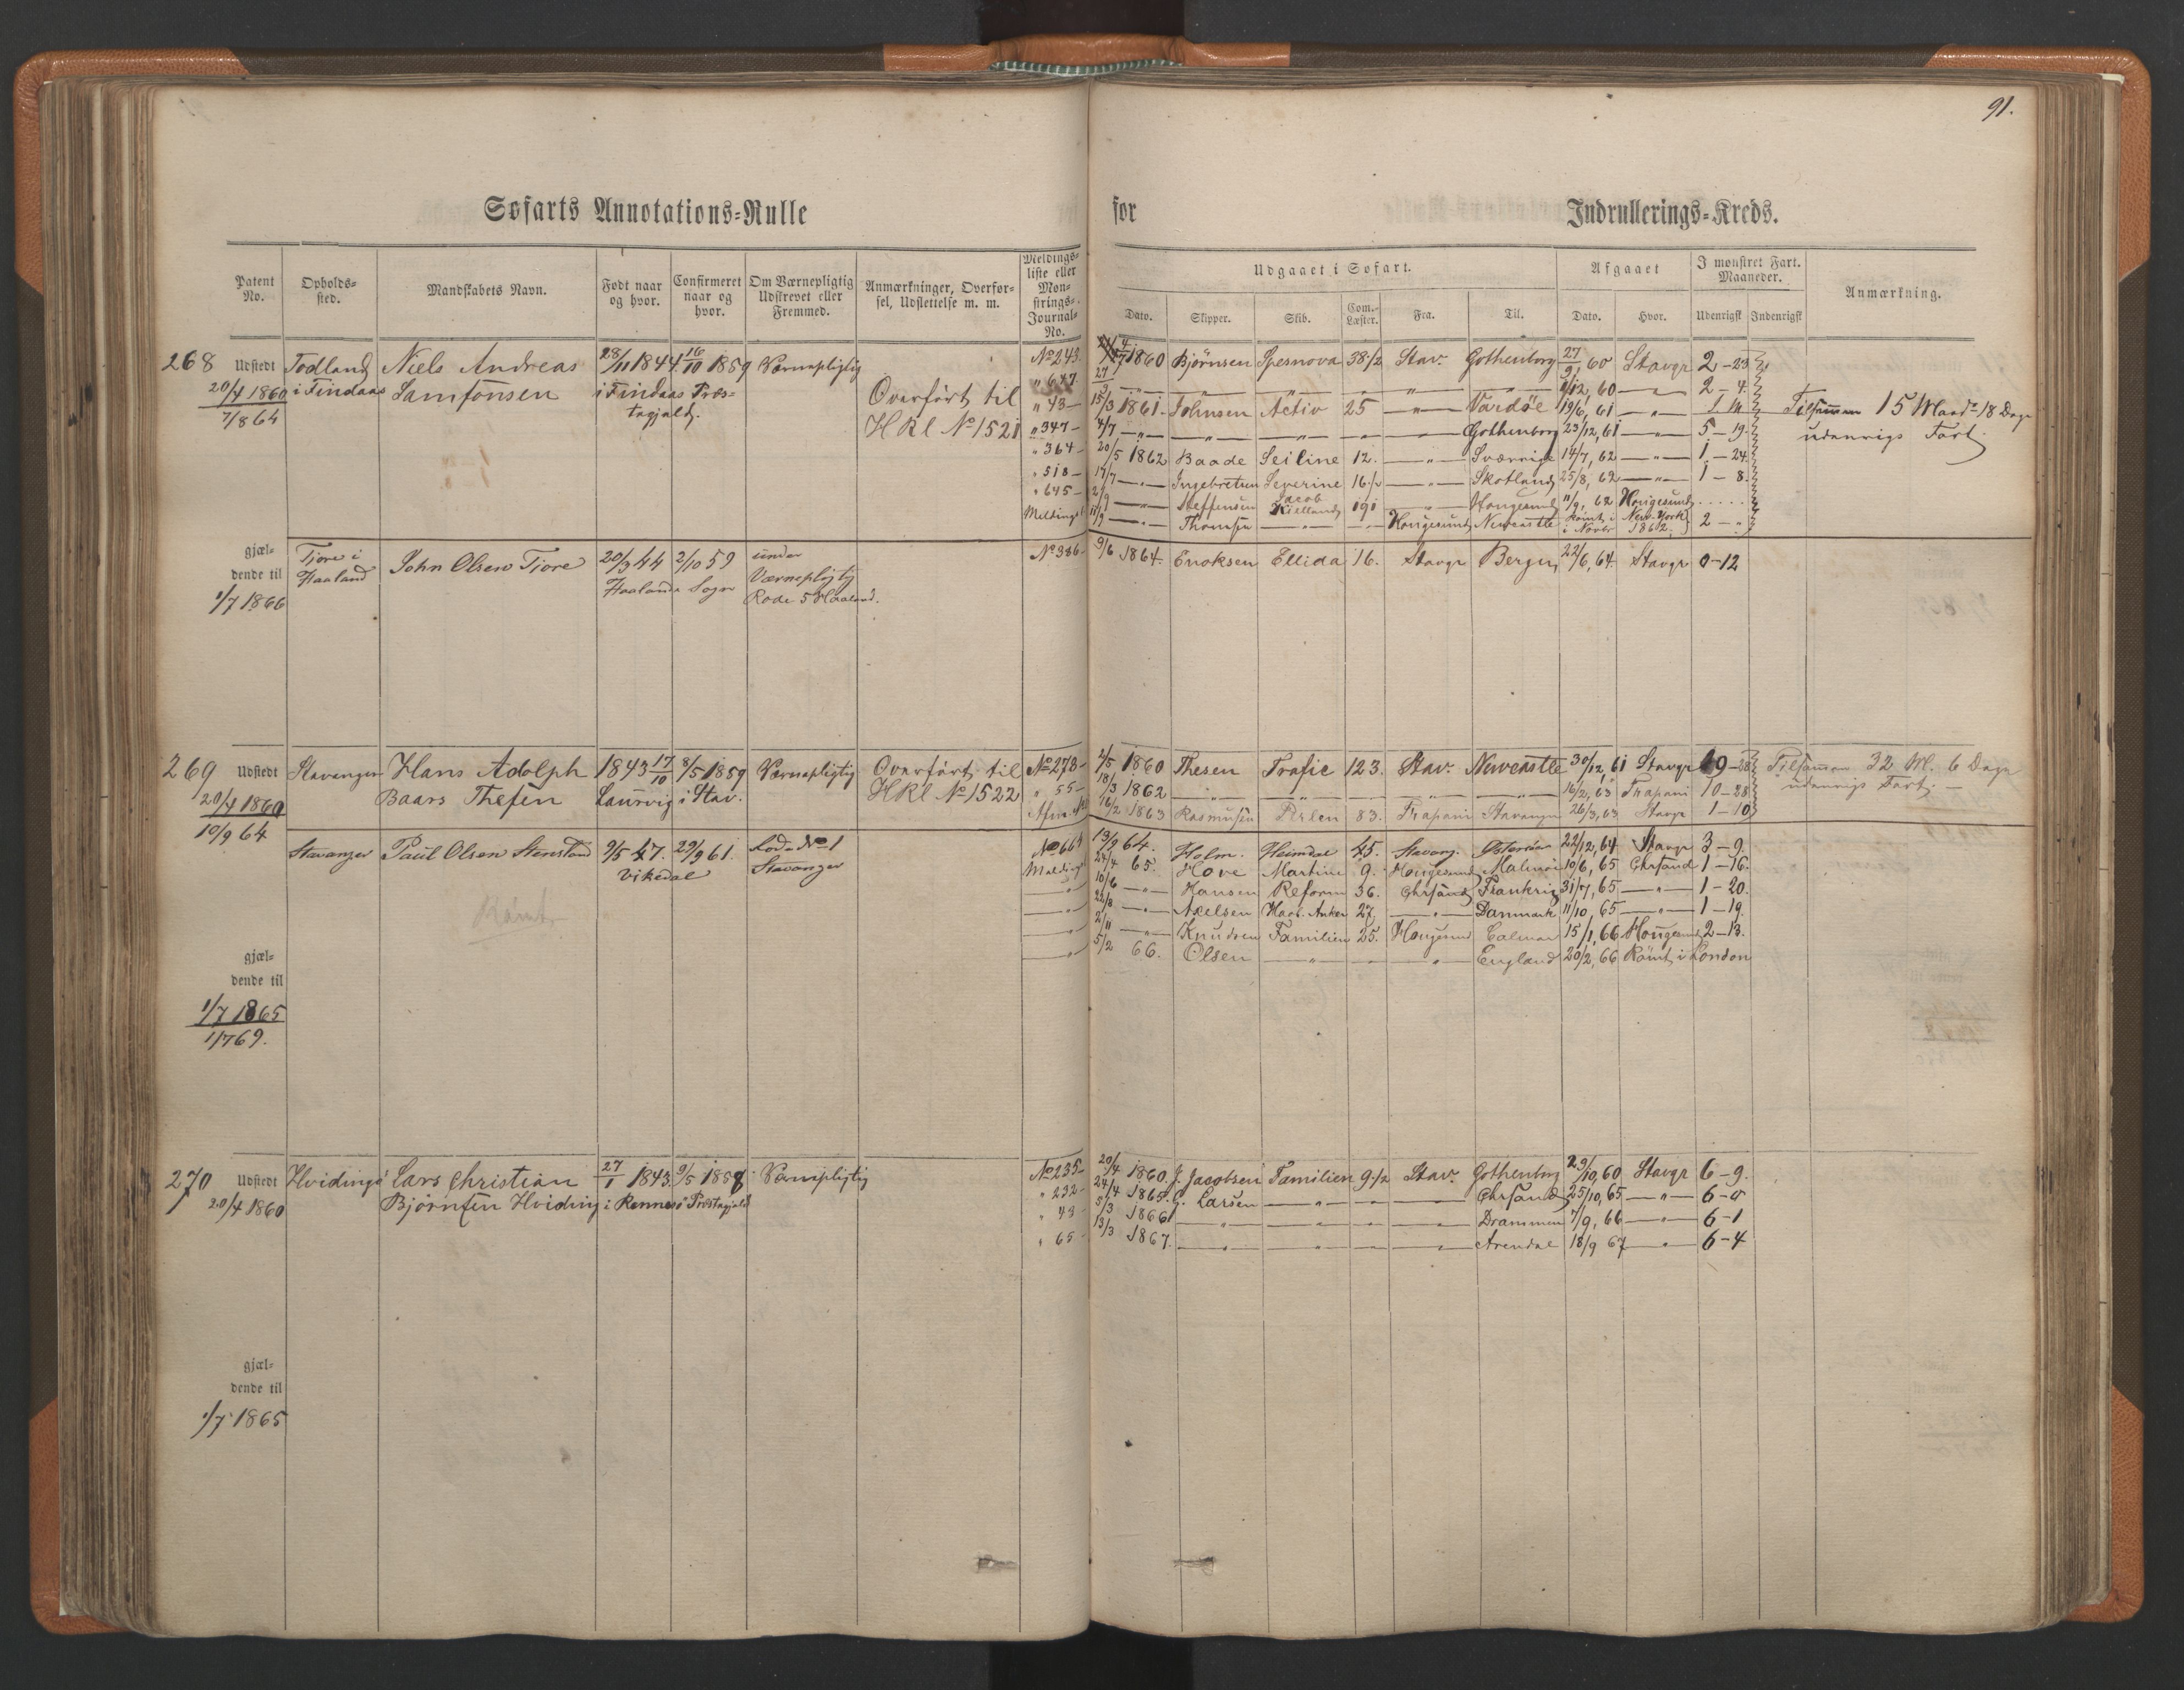 91.
Søfarts Annotations-Rulle for Indrullerings-Kreds.
Patent No.
Opholds-sted.
Mandskabets Navn.
Født naar og hvor.
Confirmeret naar og hvor.
Om Værnepligtig Udskrevet eller Fremmed.
Anmærkninger, Overfør-sel, Udslettelse m. m.
Meldings-liste eller Møn-strings-Journal-No.
Udgaaet i Søfart.
Dato.
Skipper.
Skib.
Com.-Læster.
Fra.
Til.
Afgaaet
Dato.
Hvor.
I mønstret Fart. Maaneder.
Udenrigsk
Indenrigsk
Anmærkning.
268 Udstedt Todland Niels Andreas 28/11 1844 16/10 1859 Værnepligtig No 243 4/7 1860 Bjørnsen Spesnova 38 1/2 Stav. Gothenborg 27/9, 60 Stavgr 2-23
20/4 1860 i Findaas Samsonsen i Findaas Præs- Overført til " 647 27/9 — " — " — " — 1/12, 60 — " — 2-4.
7/8 64 tegjeld. HRl No 1521 " 43 — 15/3 1861. Johnsen Activ 25 — " — Vardøe 19/6, 61 — " — Tilsammen 15 Maad 18 Dage
" 347 — 4/7 — " — Gothenborg 23/12, 61 — " — 5-19. udenrigs Fart
" 364 — 20/5 1862 Baade Seiline 12. — " — Sverrige 14/7, 62 — " — 1-24.
" 518 — 17/7 — " — Ingebretsen Severine 16 1/2 — " — Skotland 25/8, 62 — " — 1-8.
" 645 — 2/9 — " — Steffensen Jacob Kielland 191 — " — Hougesund 11/9, 62 Hougesund . . . . .
Meldingsl 11/9 — " — Thomsen — " — Hougesund Newcastle Rømt i New-York i Novbr 1862. 2 — "
gjæl- Tjore i John Olsen Tjore 20/3 44 2/10 59 under No 386. 9/6 1864. Enoksen Ellida 16. Stavgr Bergen 22/6, 64. Stavgr 0-12
dende til Haaland Haalands Sogn Værnepligtig
1/7 1866 Rode 5 Haaland.
269 Udstedt Stavanger Hans Adolph 1843 17/10 8/5 1859 Værnepligtig Overført til No 273 — 2/5 1860 Thesen Trafic 123. Stav. Newcastle 30/12, 61 Stavgr 19-28 Tilsammen 32 M. 6 Dage
20/4 1860 Baars Thesen Laurvig i Stav. HRl No 1522 " 55 — 18/3 1862 — " — " — 16/2, 63 Trapani 10-28 udenrigs Fart. —
10/9 64 16/2 1863 Rasmusen Perlen 83. Trapani Stavanger 26/3, 63 Stavgr 1-10
Stavanger Paul Olsen Stensland 9/5 47. 29/9 61. Rode No 1 No 664 13/9 64. Holm. Heimdal 45. Stavang. Østersøen 22/12, 64 Stavgr 3-9.
Vikedal Stavanger Meldingsl 24/4 65. Hove Martine 9. Hougesund Malmø 10/6, 65 Chrsand 1-16.
— " — 10/6 — " — Hansen Reform 36. Chrsand Frankrig 31/7, 65 — " — 1-20.
Rømt — " — 22/8 — " — Axelsen Haab. Anker 27, — " — Danmark 11/10, 65 — " — 1-19.
— " — 2/11 — " — Knudsen Familien 25. Hougesund Calmar 15/1, 66 Hougesund 2-13.
— " — 5/2 66. Olsen — " — England 20/2, 66 Rømt i London
gjæl-
dende til
1/7 1865
1/7 69.
270 Udstedt Hvidingsø Lars Christian 27/1 1843. 9/5 1858 Værnepligtig No 235 — 20/4 1860. J. Jacobsen Familien 9 1/2 Stav. Gothenborg 29/10, 60 Stavgr 6-9.
20/4 1860 Bjørnsen Hviding i Rennesø Præstegjeld " 232 — 24/4 1865. G. Larsen — " — Chrsand 25/10, 65 — " — 6-0
" 43 — 5/3 1866 — " — Drammen 7/9, 66 — " — 6-1
" 65 — 13/3 1867. — " — Arendal 18/9 67 — " — 6-4
gjæl-
dende til
1/7 1865